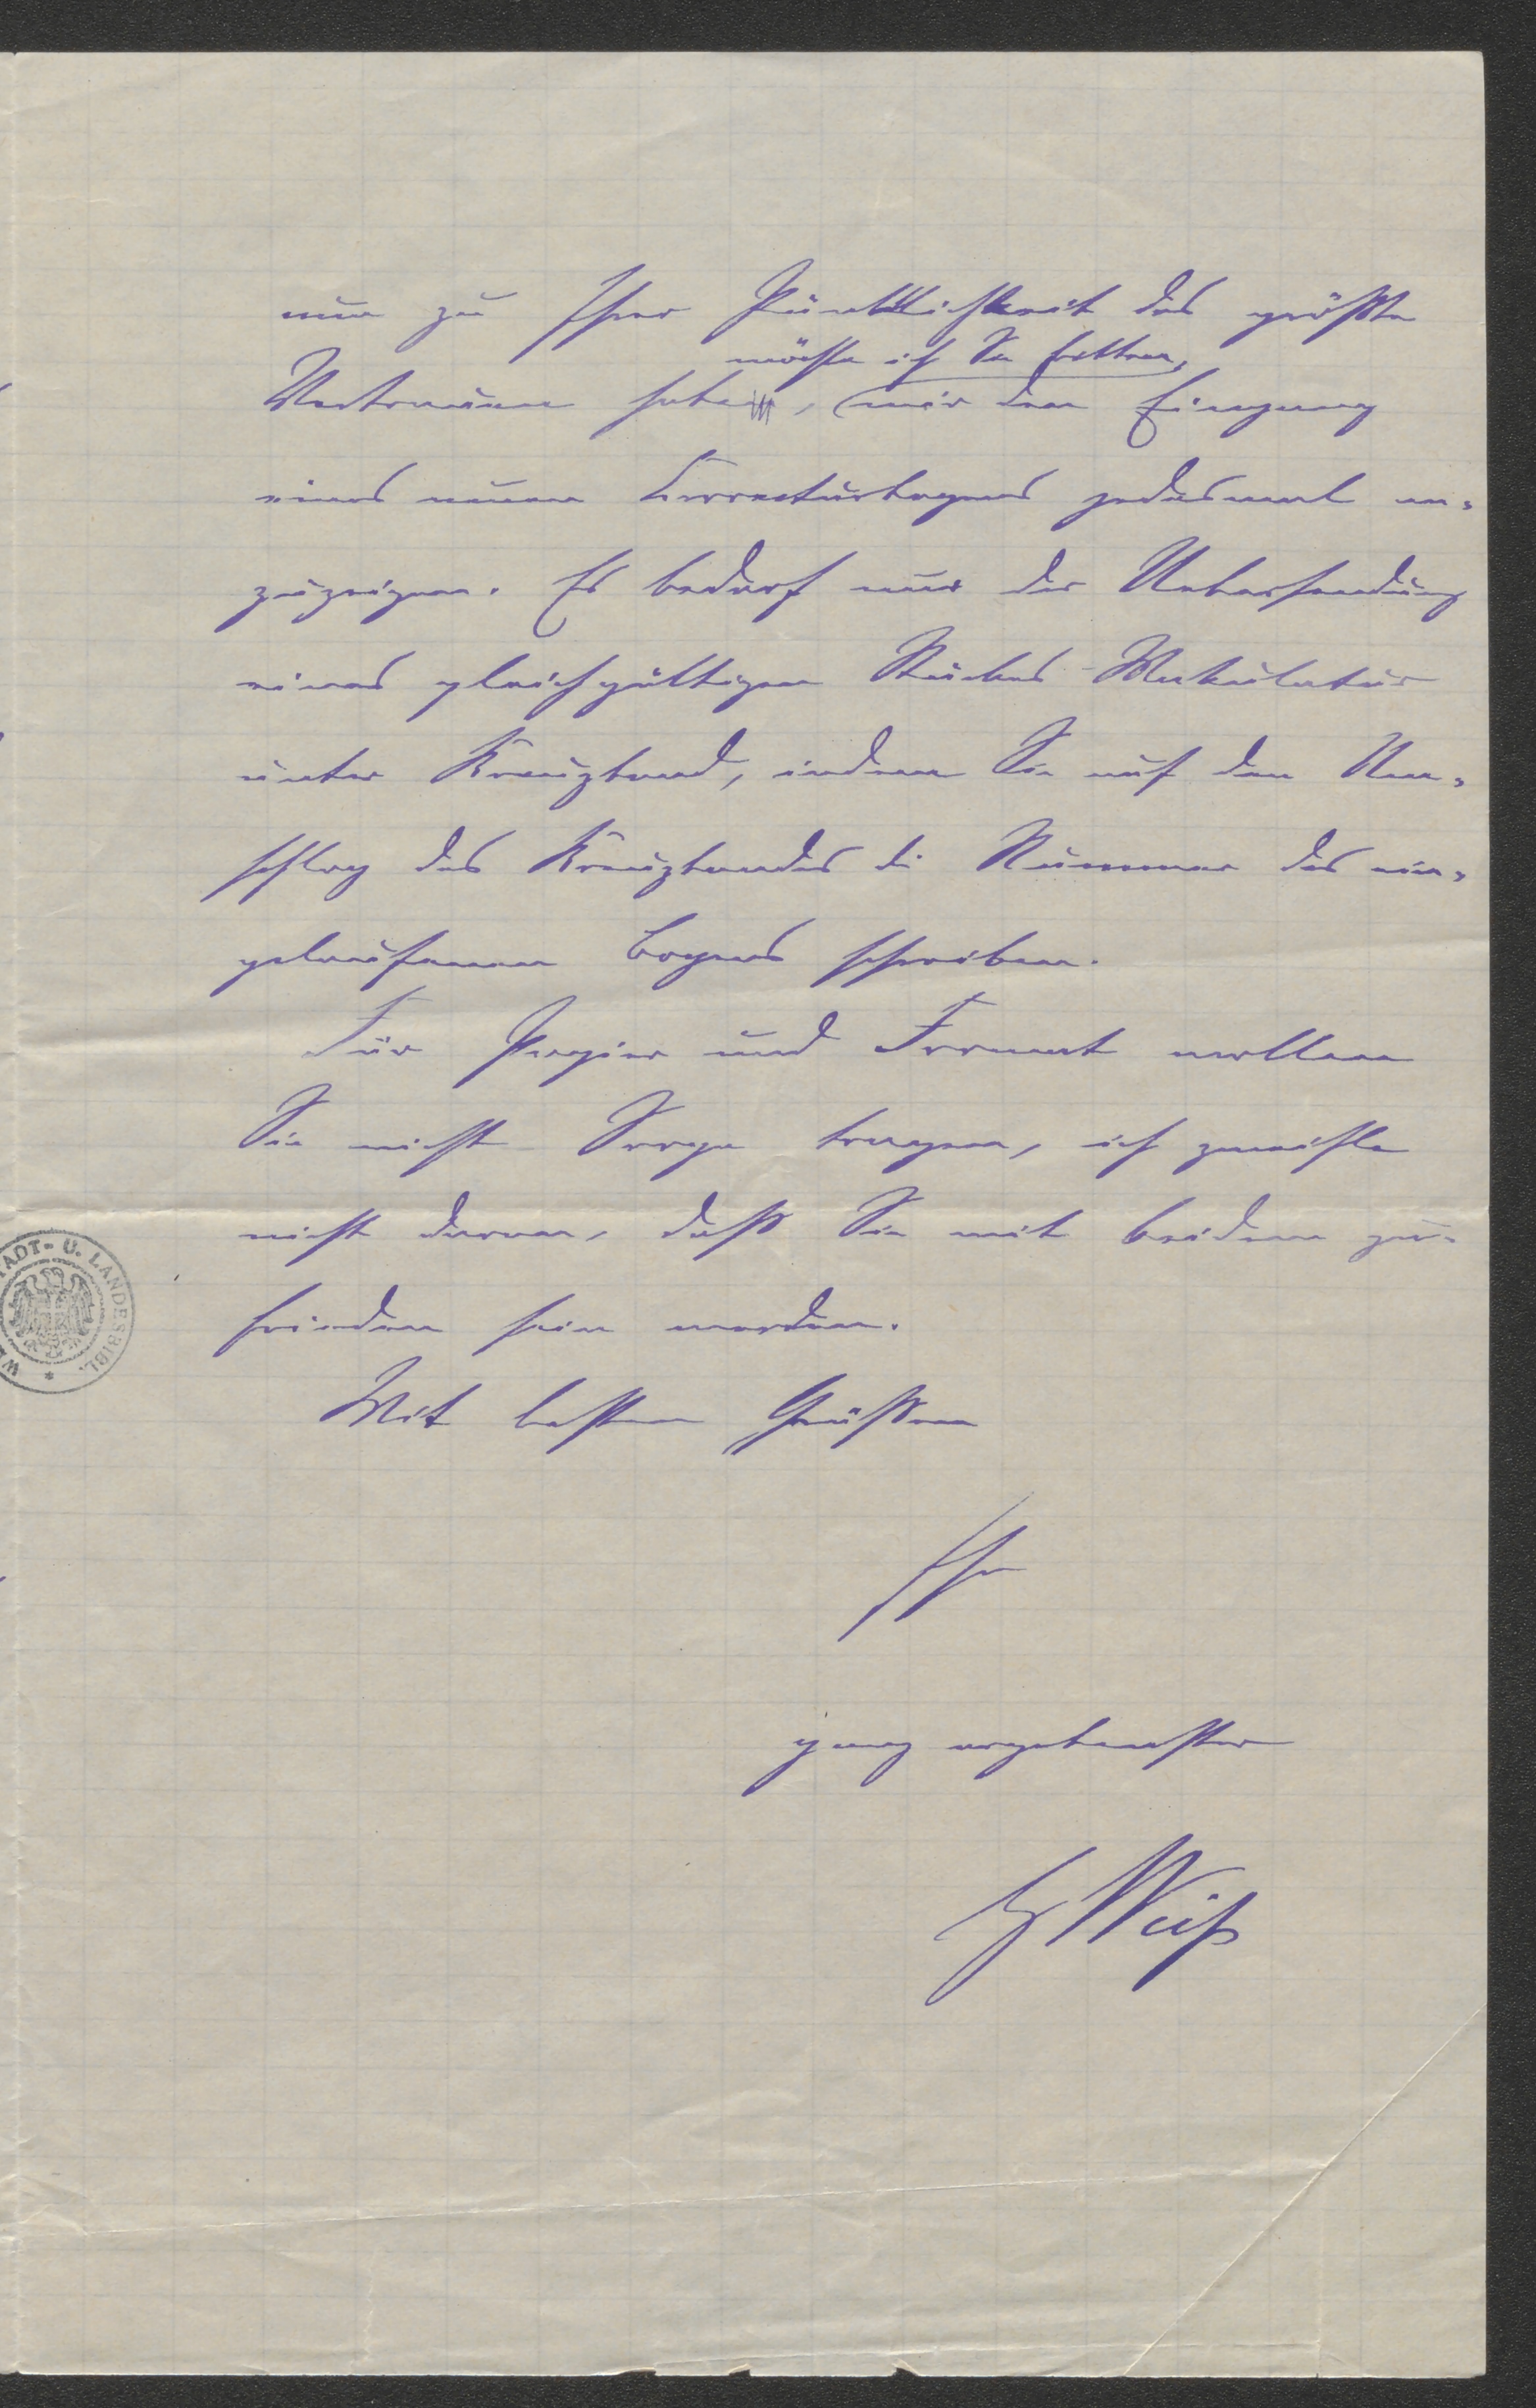 nun zu Ihrer Pünktlichkeit das größte
möchte ich Sie bitten,
Vertrauen habe, mir den Eingang
eines neuen Correcturbogens jedesmal an-
zuzeigen. Es bedarf nur der Uebersendung
eines gleichgültigen Stückes Makulatur
unter Kreuzband, indem Sie auf den Um-
schlag des Kreuzbandes die Nummer des ein-
gelaufenen Bogens schreiben.
Für Papier und Format wollen
Sie nicht Sorge tragen, ich zweifle
nicht daran, daß Sie mit beidem zu-
frieden sein werden.
Mit besten Grüßen
Ihr
ganz ergebenster
Weiß
STADT- U. LANDESBIBL.